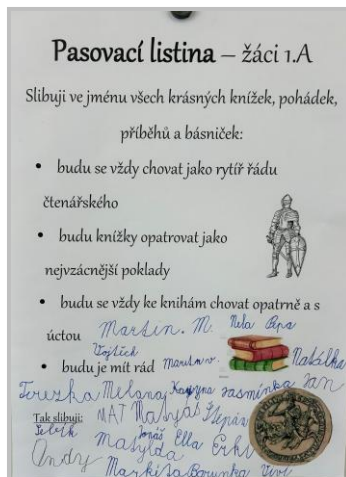 Pasovací listina – žáci 1.A
Slibuji ve jménu všech krásných knížek, pohádek,
příběhů a básniček:
• budu se vždy chovat jako rytíř řádu
čtenářského
• budu knížky opatrovat jako
nejvzácnější poklady
• budu se vždy ke knihám chovat opatrně a s
úctou Martin. M. Nela Pepa
Vojtěch
• budu je mít rád Martin v. Natálka
Terezka Melany Jasmínka Jan
Tak slibuji: MAT Matyáš Štěpán
Tomáš Ella Erik
Andy Matylda
Markéta Barunka Vivi